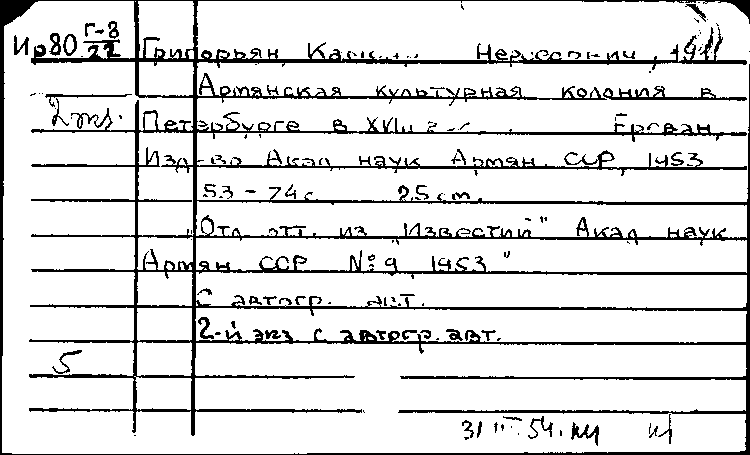 Ир80 Г-8/22 Григорьян, Нерсесович, 19
Армянская культурная колония в
2 экз. Петербурге в XVIII в. Ереван,
Изд-во Акад. наук Армян. ССР, 1953
53-74 с. 25 cm.
"Отд. отт. из "Известий" Акад. наук
Армян. ССР №9, 1953"
С автогр. авт.
2-й экз. с автогр. авт.
5
31 III 54.